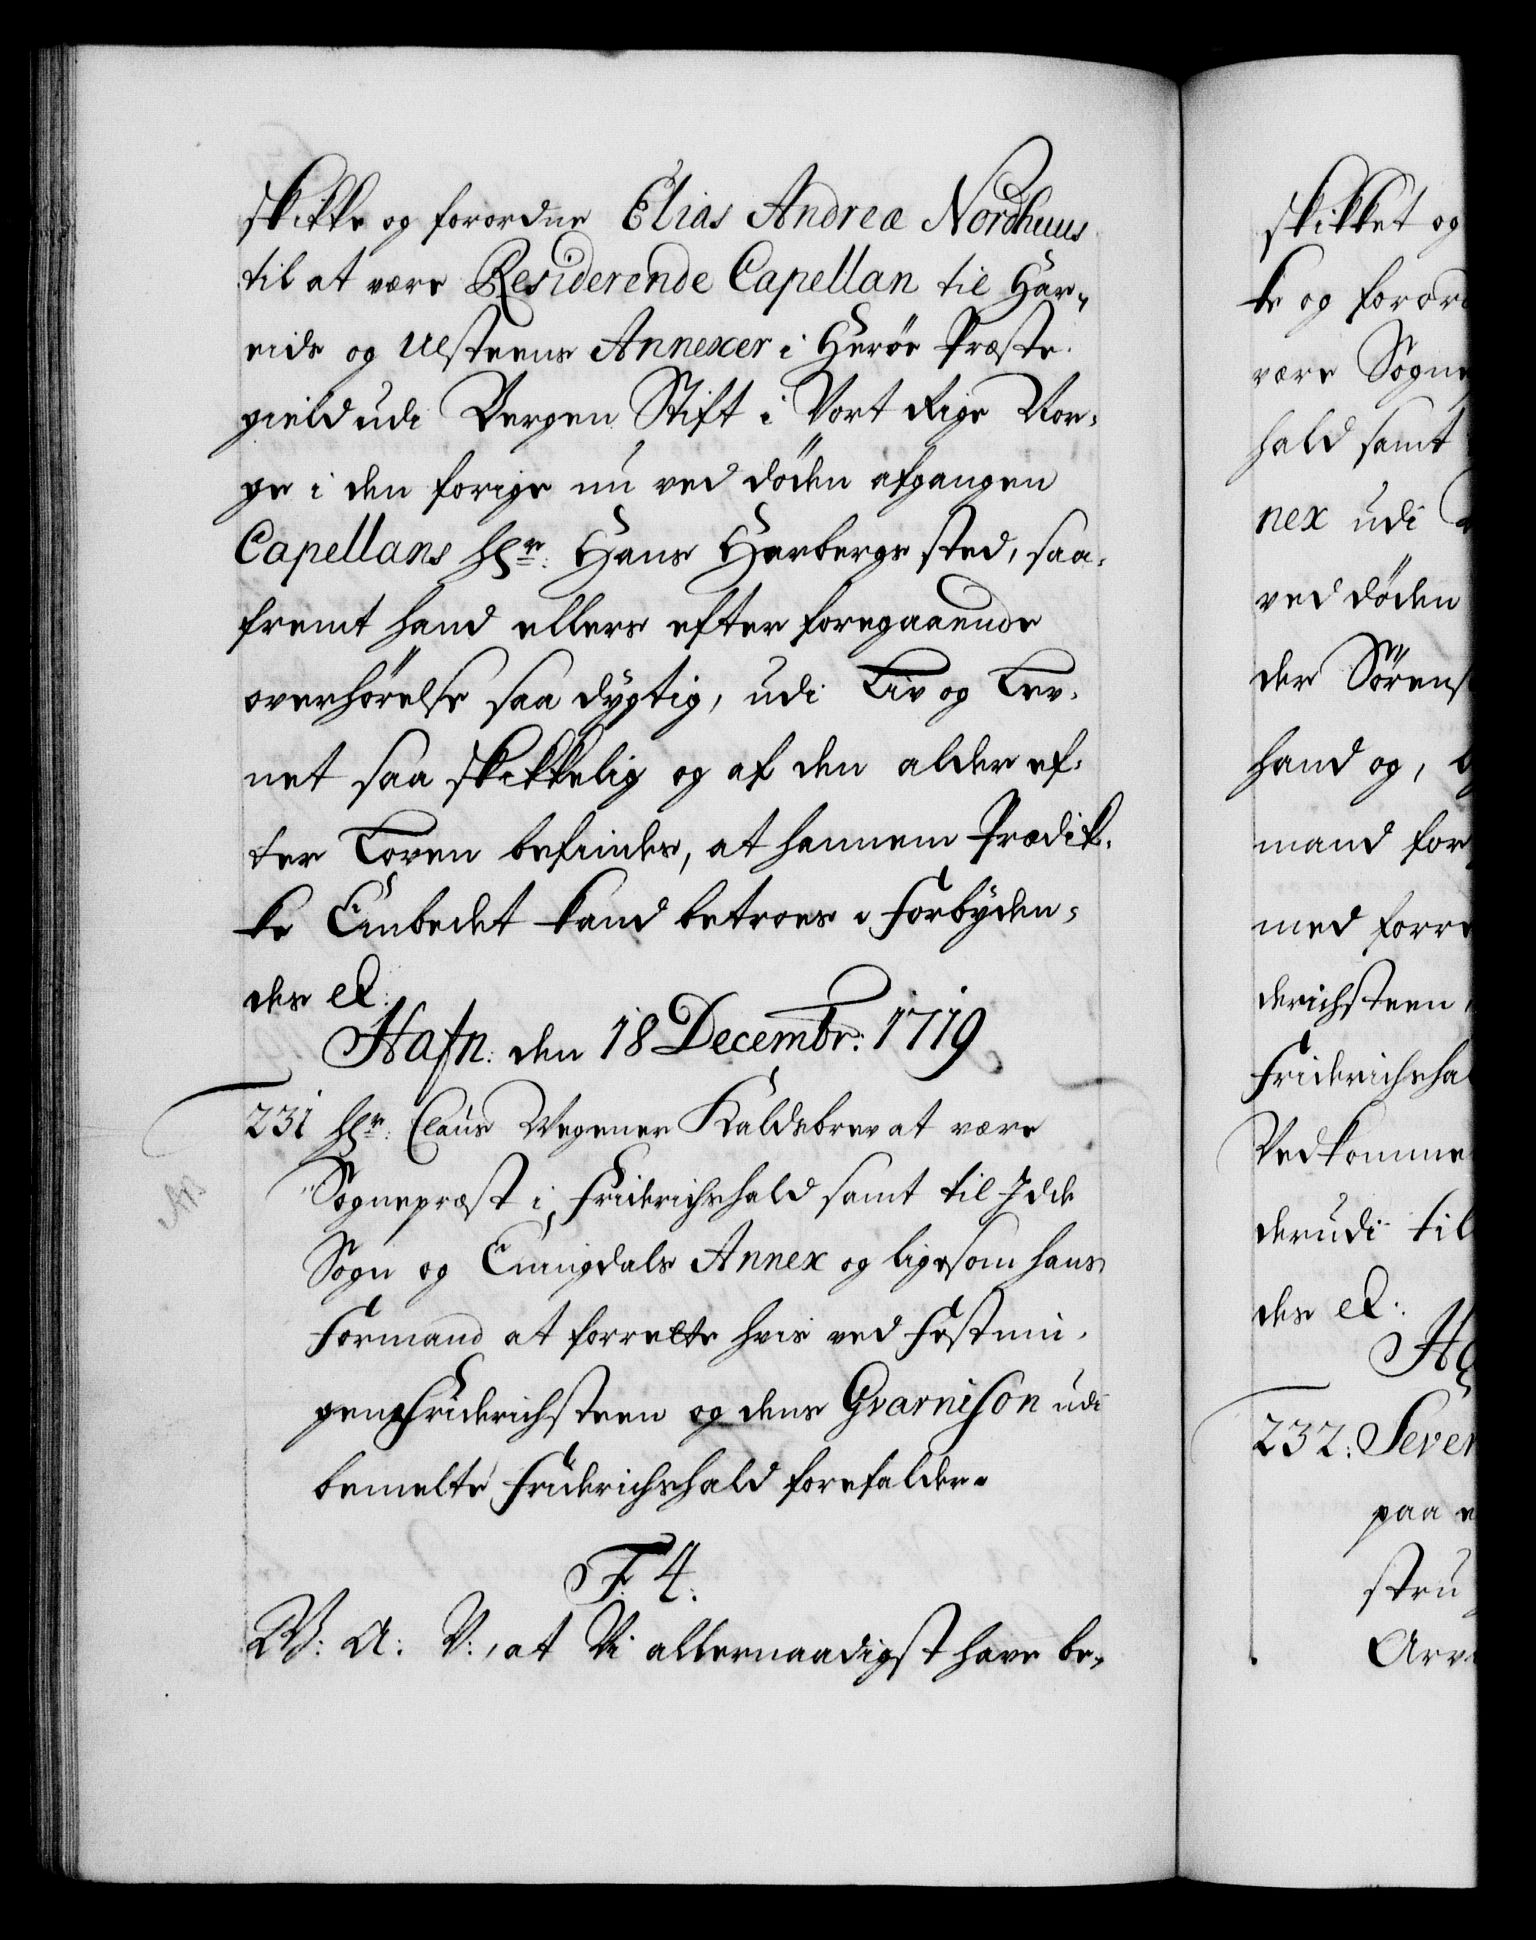 skikke og forordne Elias Andreæ Nordhuus
til at være Residerende Capellan til Har-
eids og Ulsteens Annexer i Herøe Præste-
gield udi Bergen Stift i Vort Rige Nor-
ge i den forige nu ved døden afgangen
Capellans Hr: Hans Harbergs sted, saa-
fremt hand ellers efter foregaaende
overhørelse saa dygtig, udi Liv og Lev-
net saa skikkelig og af den alder ef-
ter Loven befindes, at hannem Prædik-
ke Embedet kand betroes. Forbyden-
des etc:
Hafn: den 18 Decembr: 1719
231 Hr: Claus Wegener Kaldsbrev at være
Sognepræst i Friderichshald samt til Idde
Sogn og Enningdals Annex og ligesom hans
Formand at forrette hvis ved Festnin-
gen Friderichsteen og dens Gvarnison udi
bemelte Friderichshald forefalder.
F. 4.
W: A: V:, at Vi allernaadigst have be-
skikket og
ke og foror
være Sogne
hald samt
nex udi
ved døden
der Sørens
hand og,
mand for
med forre
derichsteen
Friderichsha
Vedkomme
derudi til
des etc:
Ha
232: Sever
paa
stru
Arv